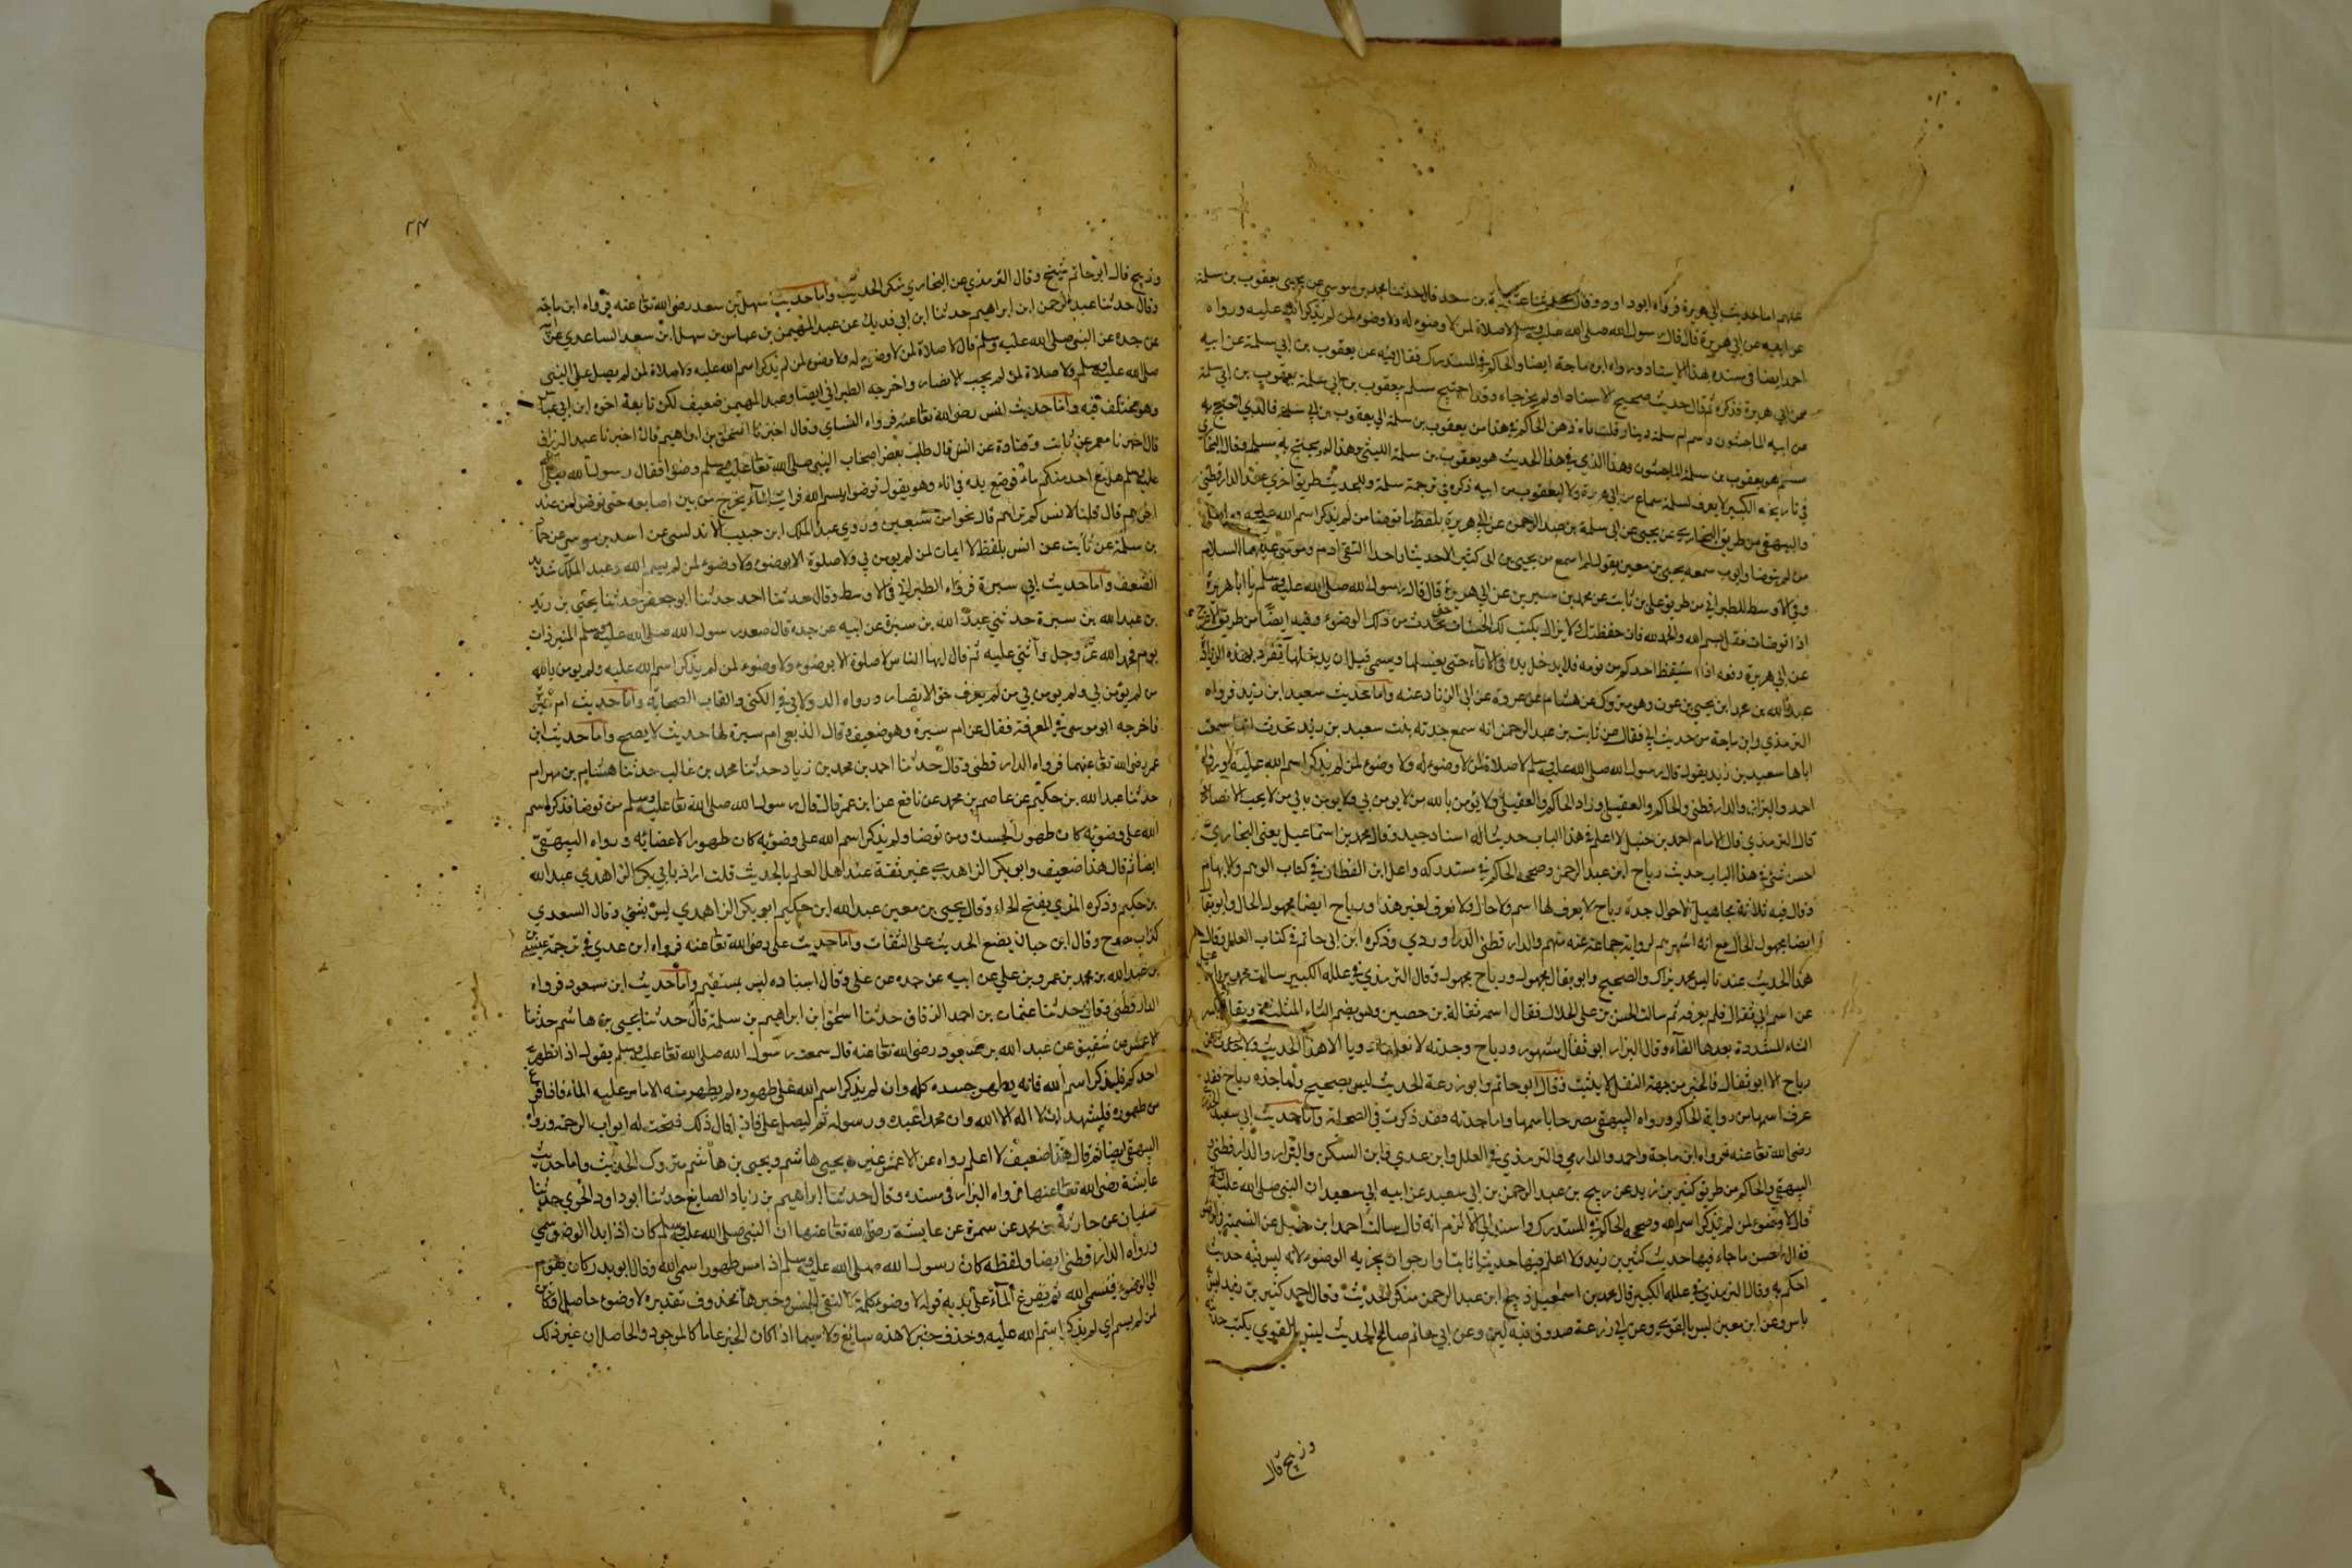 عنهم اما حديث ابي هريرة فرواه ابو داود وقال حدثنا قتيبة بن سعد قال حدثنا محمد بن موسى عن يعقوب بن سلمة
عن ابيه عن ابي هريرة قال قال رسول الله صلى الله عليه وسلم لا صلاة لمن لا وضوء له ولا وضوء لمن لم يذكر الله عليه ورواه
احمد ايضا في مسنده بهذا الاسناد ورواه ابن ماجة ايضا والحاكم في المستدرك فقال فيه عن يعقوب بن ابي سلمة عن ابيه
عن ابي هريرة فذكره ثم قال حديث صحيح الاسناد ولم يخرجاه وقد احتج مسلم بيعقوب بن ابي سلمة يعقوب بن ابي سلمة
من ابيه الماجشون واسم ابي سلمة دينار قلت ذهن الحاكم من يعقوب بن سلمة الى يعقوب بن ابي سلمة فالذي احتج به
مسلم هو يعقوب بن سلمة الماجشون وهذا الذي في هذا الحديث هو يعقوب بن سلمة الليثي وهذا لم يحتج به مسلم وقال البخاري
في تاريخه الكبير لا يعرف لسلمة سماع من ابي هريرة ولا ليعقوب من ابيه ذكره في ترجمة سلمة وللحديث طريق اخرى عند الدارقطني
والبيهقي من طريق عن يحيى عن ابي سلمة بن عبد الرحمن عن ابي هريرة بلفظ ما توضأ من لم يذكر اسم الله عليه
من لم يتوضأ وايوب سمعه يحيى بن معين يقول لم اسمع من يحيى بن ابي كثير الا حديثا واحدا التقى ادم وموسى عليهما السلام
وفي الاوسط للطبراني من طريق علي بن ثابت عن محمد بن سيرين عن ابي هريرة قال قال رسول الله صلى الله عليه وسلم يا ابا هريرة
اذا توضأت فقل بسم الله والحمد لله فان حفظتك لا يزال يكتب لك الحسنات حتى تحدث من ذلك الوضوء وفيه ايضا من طريق الاعرج
عن ابي هريرة رفعه اذا استيقظ احدكم من نومه فلا يدخل يده في الاناء حتى يغسلها ويسمي قبل ان يدخلها تفرد بهذه الزيادة
عبد الله بن محمد ابن يحيى بن عروة وهو متروك عن هشام بن عروة عن ابي الزناد عنه واما حديث سعيد ابن زيد فرواه
الترمذي وابن ماجة من حديث ابي ثفال عن ثابت بن عبد الرحمن انه سمع جدته بنت سعيد بن زيد تحدث انها سمعت
اباها سعيد بن زيد يقول قال رسول الله صلى الله عليه وسلم لا صلاة لمن لا وضوء له ولا وضوء لمن لم يذكر اسم الله عليه ورواه
احمد والبزار والدارقطني والحاكم والعقيلي وزاد الحاكم والعقيلي ولا يؤمن بالله من لا يؤمن بي ولا يؤمن بي من لا يحب الانصار
قال الترمذي قال الامام احمد بن حنبل لا اعلم في هذا الباب حديثا له اسناد جيد وقال محمد بن اسماعيل يعني البخاري
احسن شيء في هذا الباب حديث رباح ابن عبد الرحمن وصححه الحاكم في مستدركه واعل ابن القطان في كتاب الوهم والايهام
وقال فيه ثلاثة مجاهيل الاحوال جدة رباح لا يعرف لها اسم ولا حال ولا تعرف لغير هذا ورباح ايضا مجهول الحال وابو ثفال
ايضا مجهول الحال مع انه اشهرهم لرواية جماعة عنه منهم والدارقطني الدراوردي وذكره ابن ابي حاتم في كتاب العلل وقال
هذا الحديث عندنا ليس بذاك والصحيح وابو ثفال مجهول ورباح مجهول وقال الترمذي في علله الكبير سالت محمد بن اسماعيل
عن اسم ابي ثفال فلم يعرفه ثم سالت الحسن بن علي الخلال فقال اسمه ثمالة بن حصين وهو بضم الثاء المثلثة ويقال
الثاء المشددة بعدها الفاء وقال البزار ابو ثفال مشهور ورباح وجدته لا نعلمهما رويا الا هذا الحديث
رباح الا ابو ثفال فالخبر من جهة النقل لا يثبت وقال ابو حاتم وابو زرعة الحديث ليس بصحيح واما جدة رباح فقد
عرف اسمها من رواية الحاكم ورواه البيهقي مصرحا باسمها واما جدته فقد ذكرت في الصحابة واما حديث ابي سعيد الخدري
رضي الله تعالى عنه فرواه ابن ماجة واحمد والدارمي والترمذي في العلل وابن عدي وابن السكن والبزار والدارقطني
البيهقي والحاكم من طريق كثير بن زيد عن ربيح بن عبد الرحمن بن ابي سعيد عن ابيه ابي سعيد ان النبي صلى الله عليه
قال لا وضوء لمن لم يذكر اسم الله وصححه الحاكم في المستدرك واسند الى الاثرم انه قال سالت احمد ابن حنبل عن التسمية
فقال احسن ما جاء فيها حديث كثير بن زيد ولا اعلم فيها حديثا ثابتا وارجو ان يجزيه الوضوء لانه ليس فيه حديث
احكم به وقال الترمذي في علله الكبير قال محمد بن اسمعيل ربيح ابن عبد الرحمن منكر الحديث وقال احمد كثير بن زيد ليس به
باس وعن ابن معين ليس بالقوي وعن ابي زرعة صدوق فيه لين وعن ابي حاتم صالح الحديث ليس بالقوي يكتب حديثه
وربيح قال
٢٣
وربيح قال ابو حاتم شيخ وقال الترمذي عن البخاري منكر الحديث واما حديث سهل بن سعد رضي الله تعالى عنه فرواه ابن ماجة
وقال حدثنا عبد الرحمن ابن ابراهيم حدثنا ابن ابي فديك عن عبد المهيمن بن عباس بن سهل ابن سعد الساعدي عن ابيه
عن جده عن النبي صلى الله عليه وسلم قال لا صلاة لمن لا وضوء له ولا وضوء لمن لم يذكر اسم الله عليه ولا صلاة لمن لم يصل على النبي
صلى الله عليه وسلم ولا صلاة لمن لم يحب الانصار واخرجه الطبراني ايضا وعبد المهيمن ضعيف لكن تابعه اخوه ابي ابن عباس
وهو مختلف فيه واما حديث انس رضي الله تعالى عنه فرواه النسائي وقال اخبرنا اسحق بن ابراهيم قال اخبرنا عبد الرزاق
قال اخبرنا معمر عن ثابت وقتادة عن انس قال طلب بعض اصحاب النبي صلى الله تعالى عليه وسلم وضوءا فقال رسول الله صلى الله
عليه وسلم هل مع احد منكم ماء فوضع يده في اناء وهو يقول توضؤا بسم الله فرايت الماء يخرج من بين اصابعه حتى توضؤا من عند
اخرهم قال قلنا لانس كم تراهم قال نحوا من سبعين وروى عبد الملك ابن حبيب الاندلسي عن اسد بن موسى عن حماد
بن سلمة عن ثابت عن انس بلفظ لا ايمان لمن لم يؤمن بي ولا صلوة الا بوضوء ولا وضوء لمن لم يسم الله وعبد الملك شديد
الضعف واما حديث ابي سبرة فرواه الطبراني في الاوسط وقال حدثنا احمد حدثنا ابو جعفر حدثنا يحيى بن يزيد
بن عبد الله بن سبرة حدثني عبد الله بن سبرة عن ابيه عن جده قال صعد رسول الله صلى الله عليه وسلم المنبر ذات
يوم فحمد الله عز وجل واثنى عليه ثم قال ايها الناس لا صلوة الا بوضوء ولا وضوء لمن لم يذكر اسم الله عليه ولم يؤمن بالله
من لم يؤمن بي ولم يؤمن بي من لم يعرف حق الانصار ورواه الدولابي في الكنى والقاب الصحابة واما حديث ام سبرة
فاخرجه ابو موسى في المعرفة فقال عن ام سبرة وهو ضعيف وقال الذهبي ام سبرة لها حديث لا يصح واما حديث ابن
عمر رضي الله تعالى عنهما فرواه الدارقطني وقال حدثنا احمد بن محمد بن زياد حدثنا محمد بن غالب حدثنا هشام بن بهرام
حدثنا عبد الله بن حكيم عن عاصم بن محمد عن نافع عن ابن عمر قال قال رسول الله صلى الله تعالى عليه وسلم من توضا فذكر اسم
الله على وضوئه كان طهورا لجسده ومن توضا ولم يذكر اسم الله على وضوئه كان طهورا لاعضائه ورواه البيهقي
ايضا ثم قال هذا ضعيف وابو بكر الزاهري غير ثقة عند اهل العلم بالحديث قلت اراد بابي بكر الزاهري عبد الله
بن حكيم وذكره المزي بفتح الحاء وقال يحيى بن معين عبد الله ابن حكيم ابو بكر الزاهري ليس بشيء وقال السعدي
كذاب مصرح وقال ابن حبان يضع الحديث على الثقات واما حديث علي رضي الله تعالى عنه فرواه ابن عدي في ترجمة عيسى
بن عبد الله بن محمد بن عمرو بن علي عن ابيه عن جده عن علي وقال اسناده ليس بمستقيم واما حديث ابن مسعود فرواه
الدارقطني وقال حدثنا عثمان بن احمد الدقاق حدثنا اسحق ابن ابراهيم بن سلمة قال حدثنا يحيى بن هاشم حدثنا
الاعمش عن شقيق عن عبد الله بن مسعود رضي الله تعالى عنه قال سمعت رسول الله صلى الله تعالى عليه وسلم يقول اذا تطهر
احدكم فليذكر اسم الله فانه يطهر جسده كله وان لم يذكر اسم الله على طهوره لم يطهر منه الا ما مر عليه الماء فاذا فرغ
من طهوره فليشهد ان لا اله الا الله وان محمدا عبده ورسوله ثم ليصل علي فاذا قال ذلك فتحت له ابواب الرحمة ورواه
البيهقي ايضا ثم قال هذا ضعيف لا اعلم رواه عن الاعمش غير يحيى بن هاشم ويحيى بن هاشم متروك الحديث واما حديث
عايشة رضي الله تعالى عنها فرواه البزار في مسنده وقال حدثنا ابراهيم بن زياد الصايغ حدثنا ابو داود الحفري حدثنا
سفيان عن حارثة بن محمد عن عمرة عن عايشة رضي الله تعالى عنها ان النبي صلى الله عليه وسلم كان اذا بدا الوضوء سمى
ورواه الدارقطني ايضا ولفظه كان رسول الله صلى الله عليه وسلم اذا مس طهورا سمى الله وقال ابو بدر كان يقوم
الى الوضوء فيسمي الله ثم يفرغ الماء على يديه قوله لا وضوء كلمة لا لنفي الجنس وخبرها محذوف تقديره لا وضوء حاصل او كاين
لمن لم يسم اي لم يذكر اسم الله عليه وحذف خبر لا هذه سايغ ولا سيما اذا كان الخبر عاما كالموجود والحاصل لان غير ذلك